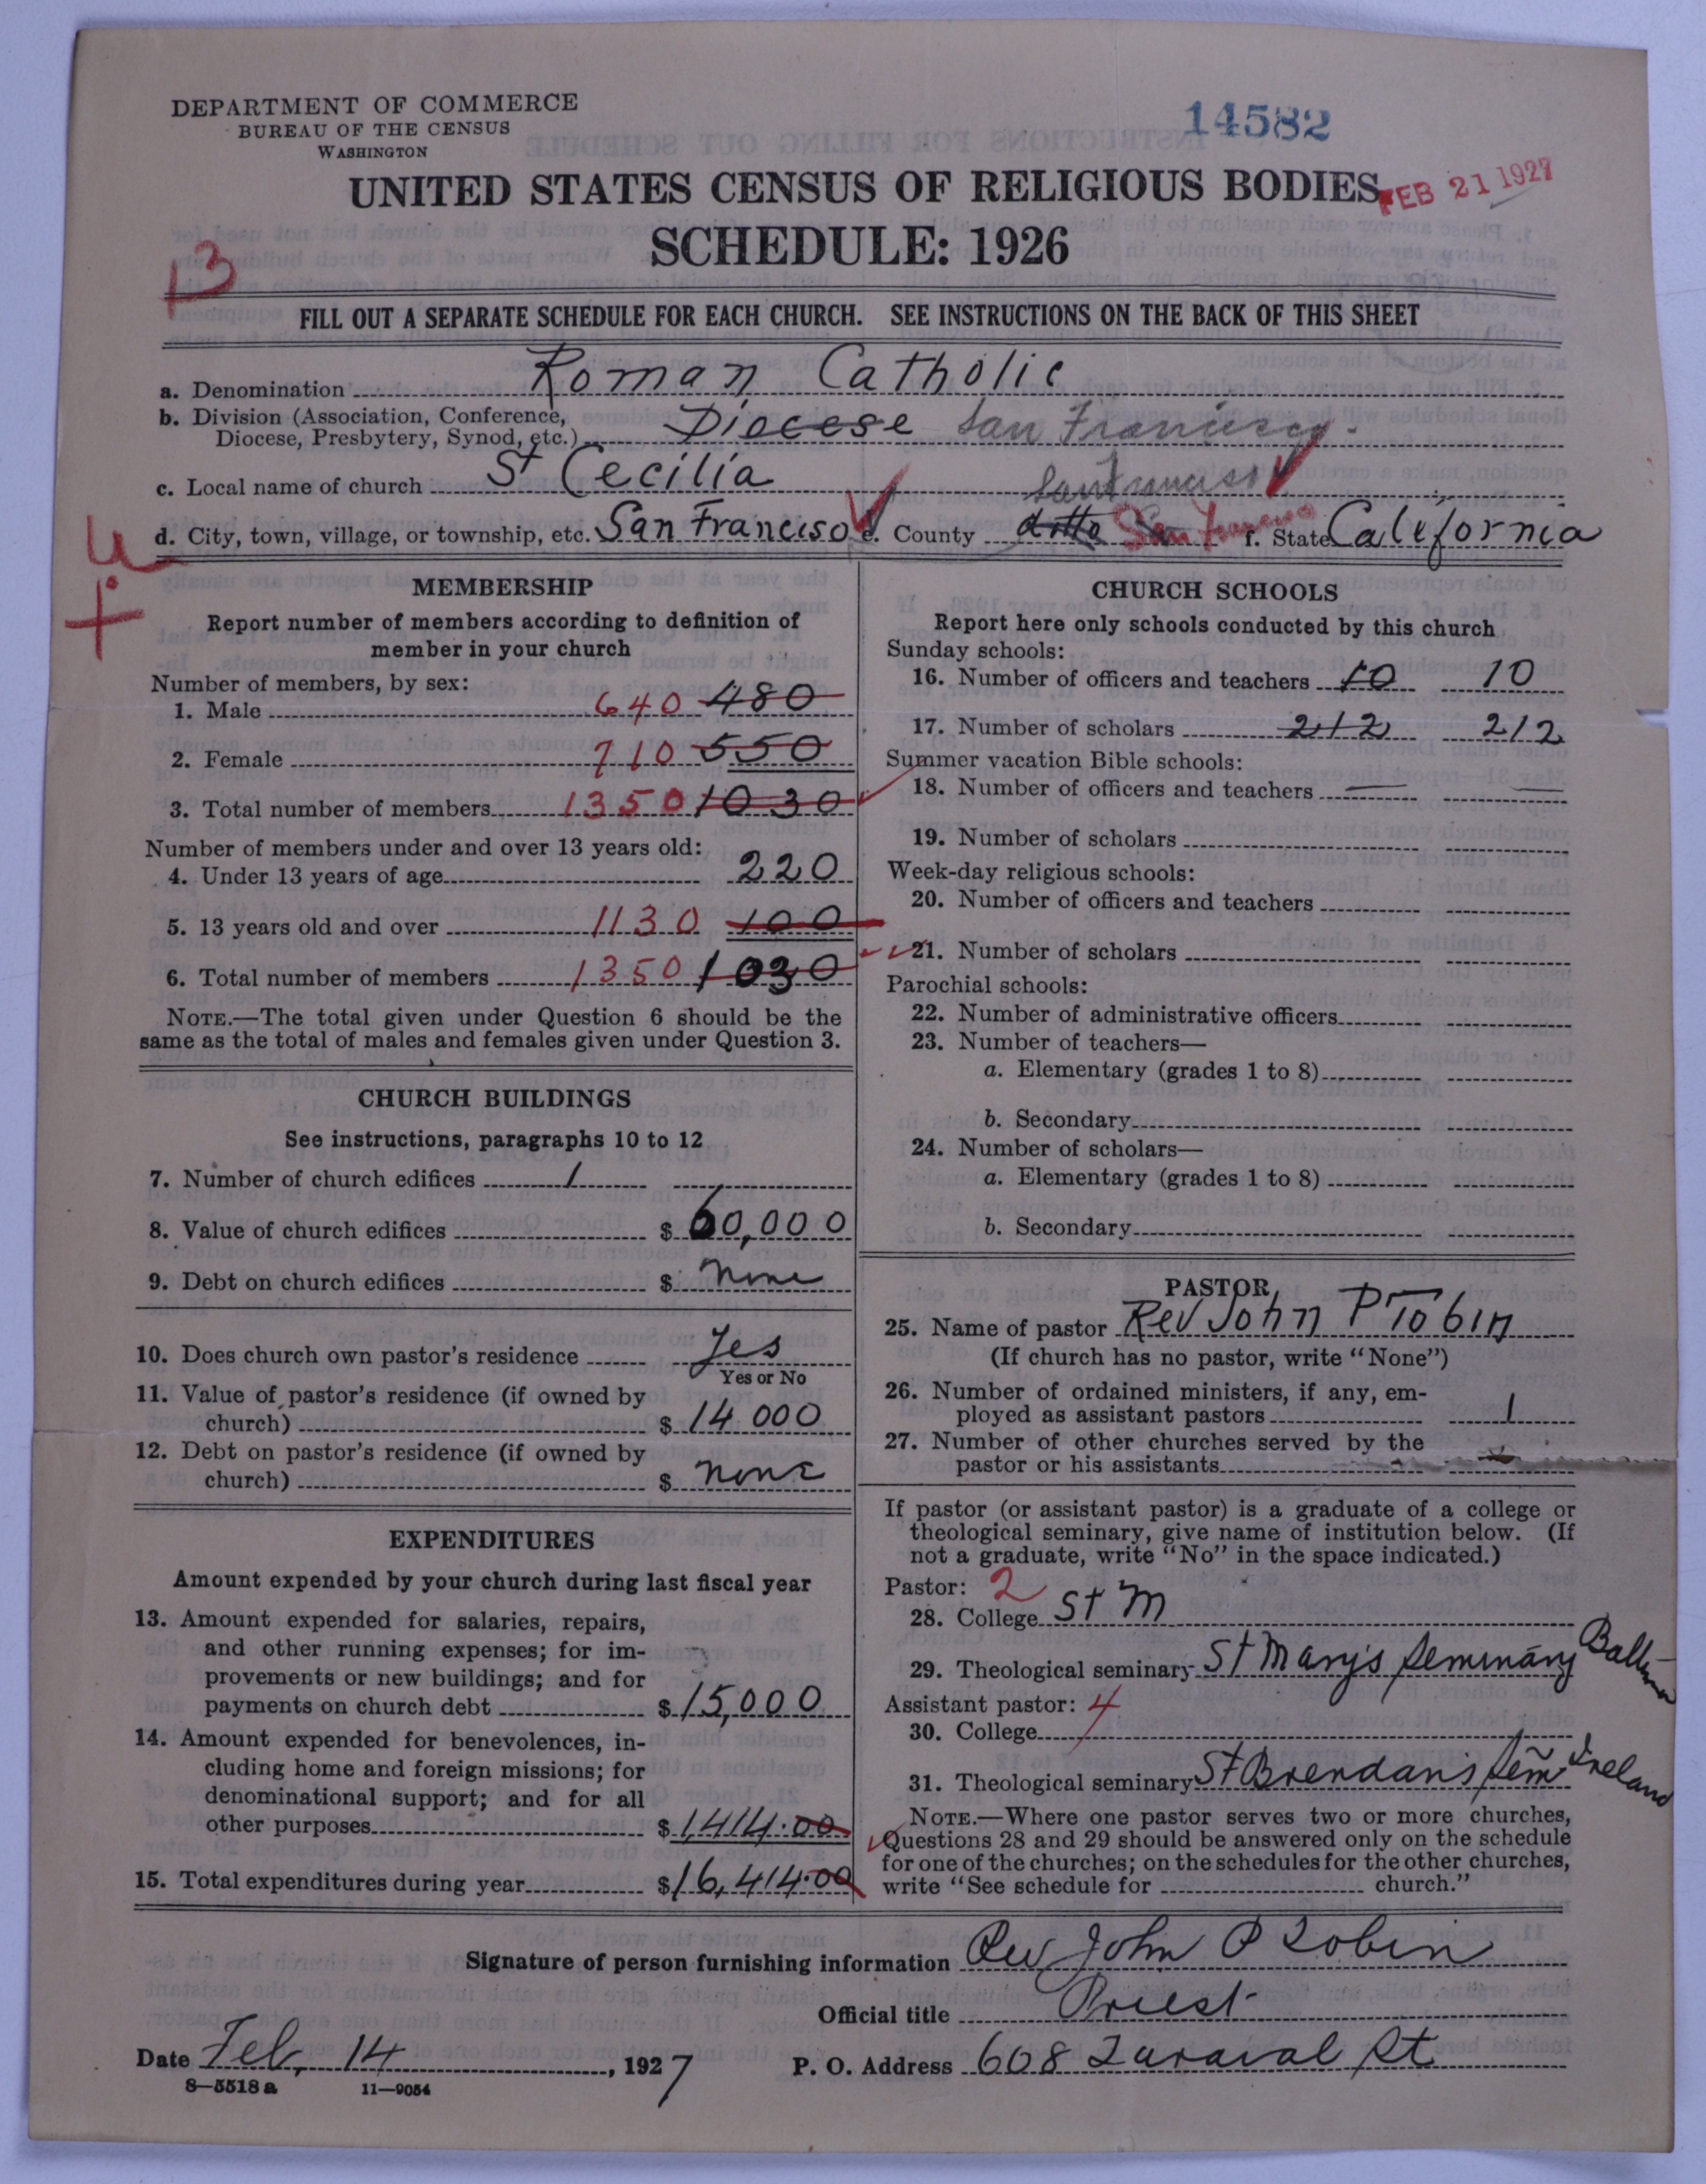 DEPARTMENT OF COMMERCE
BUREAU OF THE CENSUS
WASHINGTON
14582
UNITED STATES CENSUS OF RELIGIOUS BODIES
FEB 21 1927
SCHEDULE: 1926
13
FILL OUT A SEPARATE SCHEDULE FOR EACH CHURCH. SEE INSTRUCTIONS ON THE BACK OF THIS SHEET
a. Denomination Roman Catholic
b. Division (Association, Conference,
Diocese, Presbytery, Synod, etc.) Diocese San Francisco.
c. Local name of church St Cecilia
San Francisco
d. City, town, village, or township, etc. San Francisco e. County ditto San Francisco f. State California
MEMBERSHIP
Report number of members according to definition of
member in your church
Number of members, by sex:
1. Male 640 480
2. Female 710 550
3. Total number of members 1350 1030
Number of members under and over 13 years old:
4. Under 13 years of age 220
5. 13 years old and over 1130 100
6. Total number of members 1350 1030
NOTE.—The total given under Question 6 should be the
same as the total of males and females given under Question 3.
CHURCH BUILDINGS
See instructions, paragraphs 10 to 12
7. Number of church edifices 1
8. Value of church edifices $ 60,000
9. Debt on church edifices $ none
10. Does church own pastor's residence Yes
Yes or No
11. Value of pastor's residence (if owned by
church) $ 14 000
12. Debt on pastor's residence (if owned by
church) $ none
EXPENDITURES
Amount expended by your church during last fiscal year
13. Amount expended for salaries, repairs,
and other running expenses; for im-
provements or new buildings; and for
payments on church debt $ 15,000
14. Amount expended for benevolences, in-
cluding home and foreign missions; for
denominational support; and for all
other purposes $ 1,414.00
15. Total expenditures during year $ 16,414.00
CHURCH SCHOOLS
Report here only schools conducted by this church
Sunday schools:
16. Number of officers and teachers 10 10
17. Number of scholars 212 212
Summer vacation Bible schools:
18. Number of officers and teachers — —
19. Number of scholars
Week-day religious schools:
20. Number of officers and teachers
21. Number of scholars
Parochial schools:
22. Number of administrative officers
23. Number of teachers—
a. Elementary (grades 1 to 8)
b. Secondary
24. Number of scholars—
a. Elementary (grades 1 to 8)
b. Secondary
PASTOR
25. Name of pastor Rev John P Tobin
(If church has no pastor, write "None")
26. Number of ordained ministers, if any, em-
ployed as assistant pastors 1
27. Number of other churches served by the
pastor or his assistants
If pastor (or assistant pastor) is a graduate of a college or
theological seminary, give name of institution below. (If
not a graduate, write "No" in the space indicated.)
Pastor: 2
28. College St M
29. Theological seminary St Mary's Seminary
Assistant pastor: 4
30. College
31. Theological seminary St Brendan's Sem Ireland
NOTE.—Where one pastor serves two or more churches,
Questions 28 and 29 should be answered only on the schedule
for one of the churches; on the schedules for the other churches,
write "See schedule for church."
Signature of person furnishing information Rev John P Tobin
Official title Priest
Date Feb, 14, 1927 P. O. Address 608 Taraval St
8—5518 a 11—9054